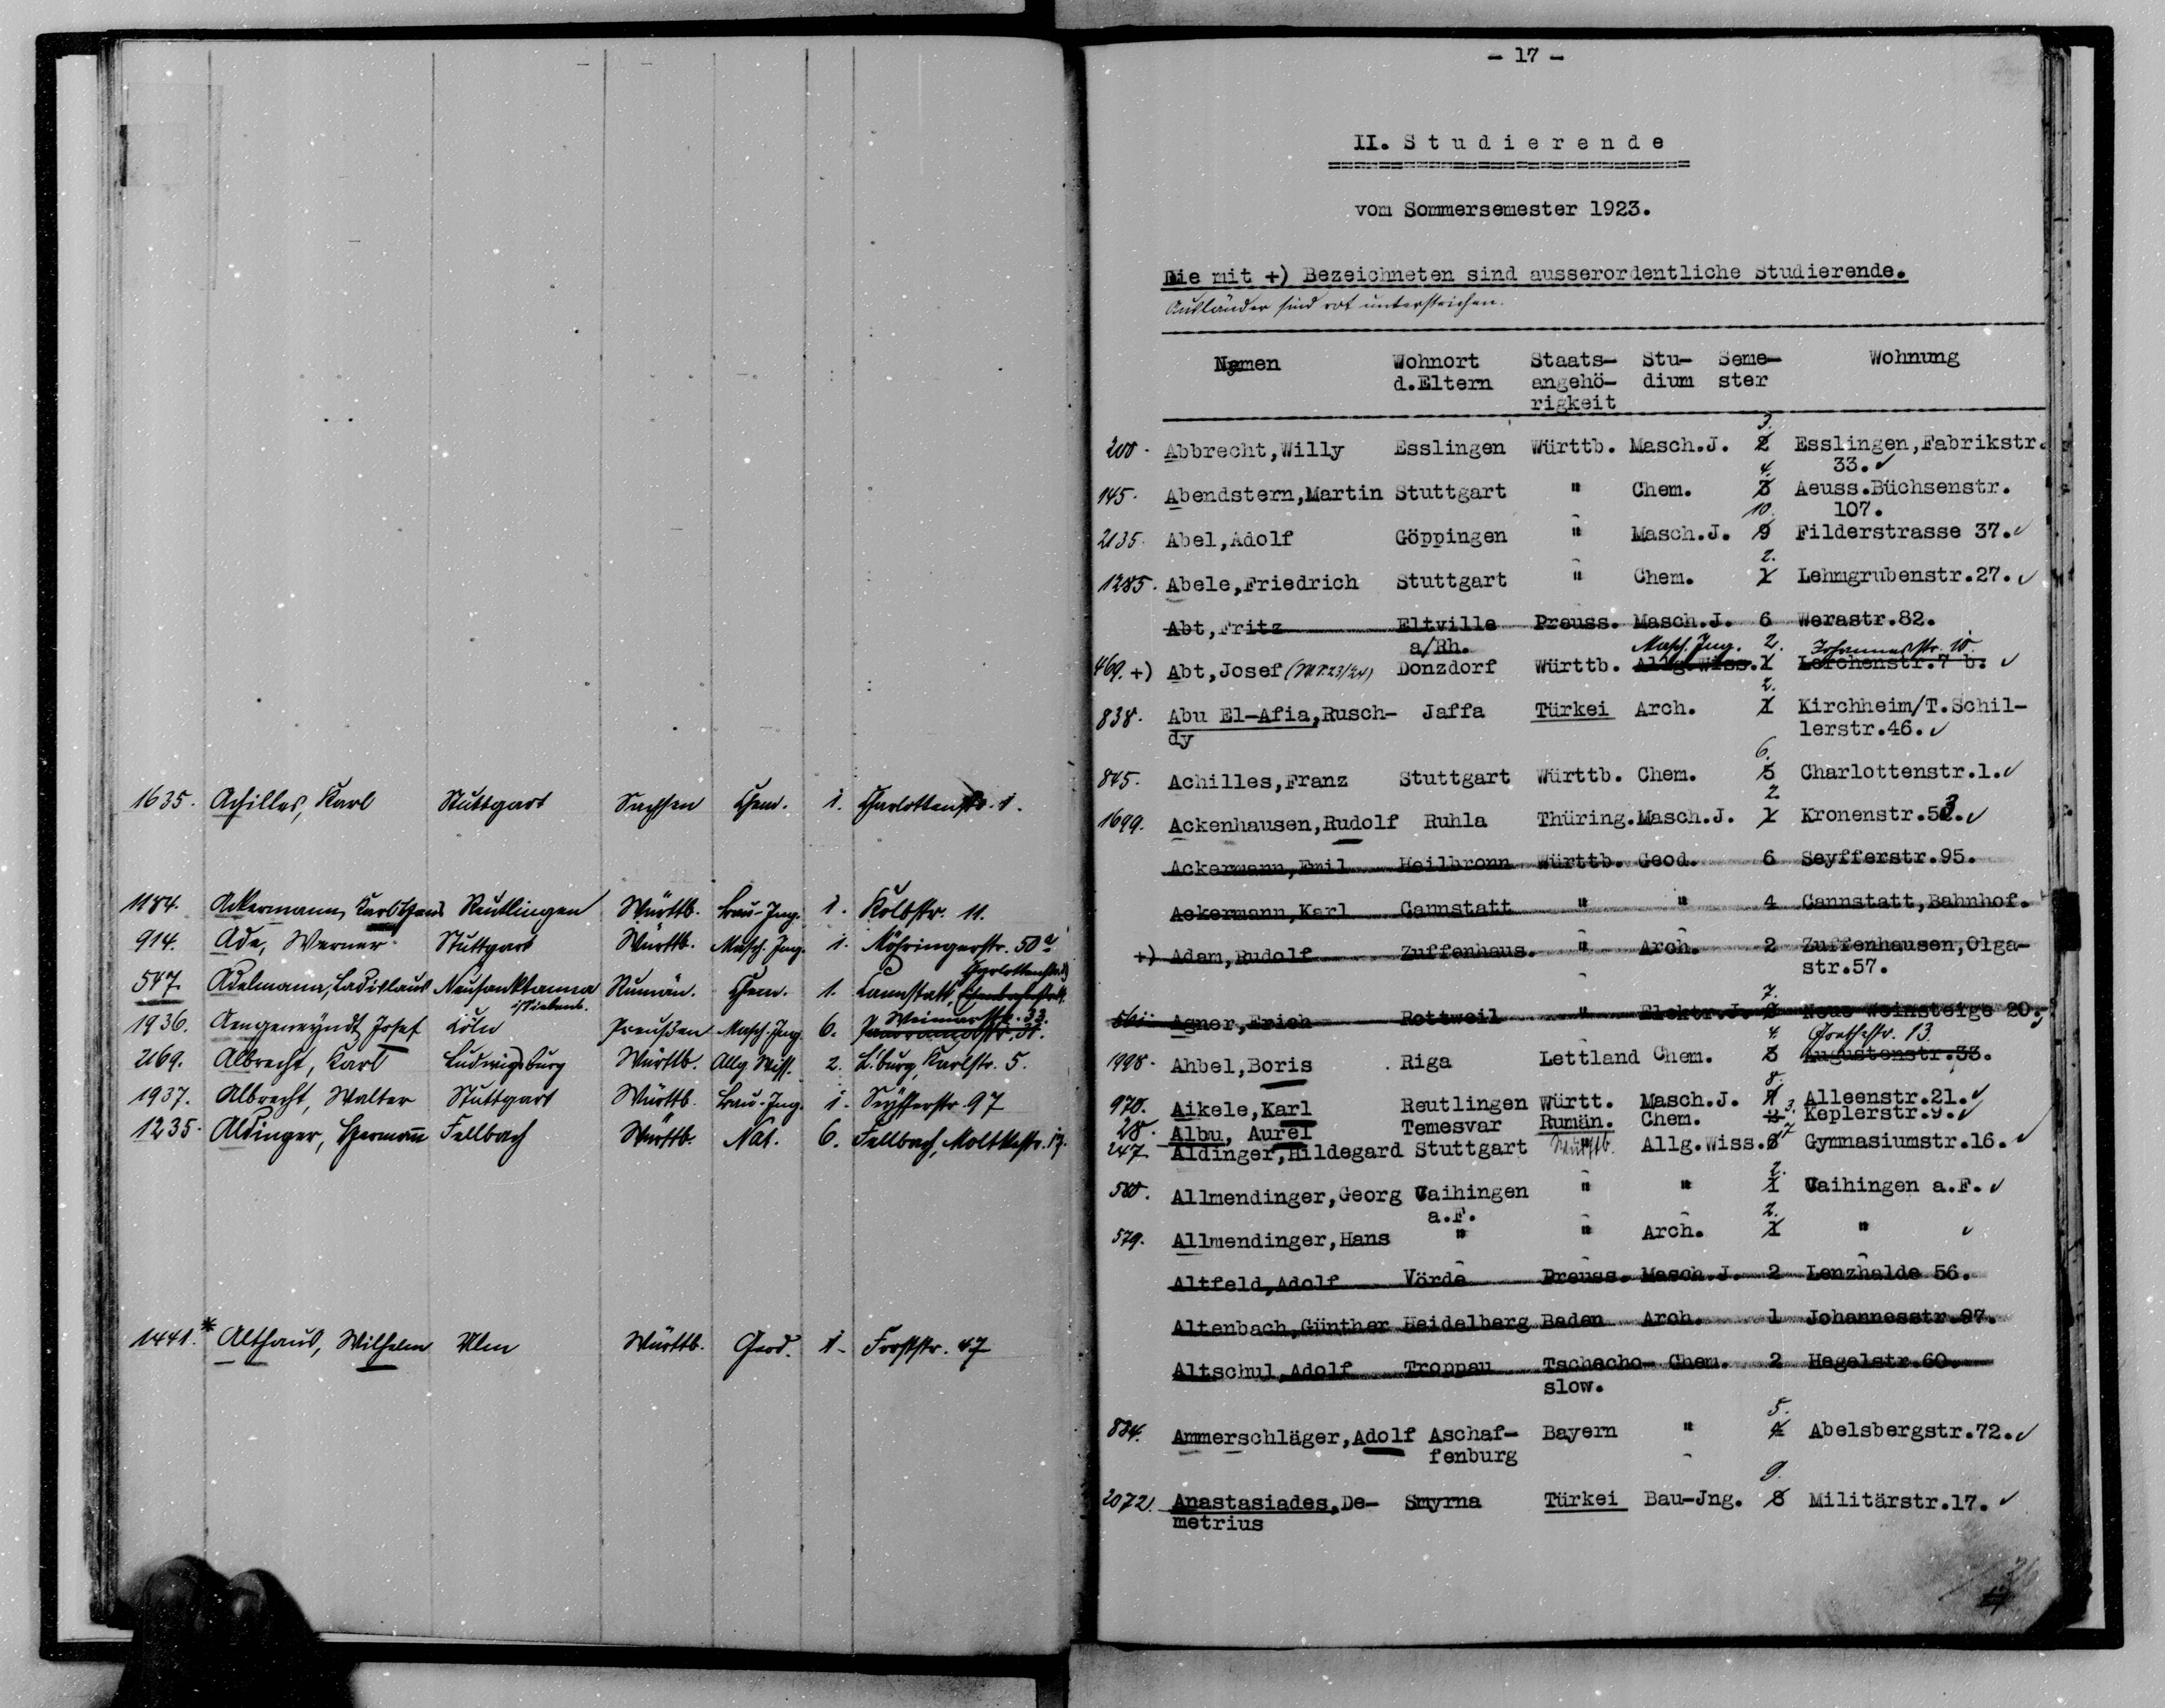 1635. Achilles, Karl Stuttgart Sachsen Chem. 1. Charlottenstr. 1.
1184. Ackermann, Karl Hans Reutlingen Württb. Bau-Ing. 1. Kolbstr. 11.
914. Ade, Werner Stuttgart Württb. Masch. Ing. 1. Möhringerstr. 50a
Charlottenstr.
547. Adelmann, Ladislaus Neusanktanna Rumän. Chem. 1. Cannstatt,
i/Siebenb.
Weimarstr. 33.
1936. Aengeneyndt, Josef Cöln Preußen Masch. Ing. 6. Panoramastr. 31.
2169. Albrecht, Karl Ludwigsburg Württb. Allg. Wiss. 2. L'burg, Karlstr. 5.
1937. Albrecht, Walter Stuttgart Württb. Bau-Ing. 1. Seyfferstr. 97
1235. Aldinger, Hermann Fellbach Württb. Nat. 6. Fellbach, Moltkestr. 19.
1441.* Althaus, Wilhelm Ulm Württb. Geod. 1. Forststr. 47
- 17 -
II. Studierende
vom Sommersemester 1923.
Die mit +) Bezeichneten sind ausserordentliche Studierende.
Ausländer sind rot unterstrichen.
Namen Wohnort Staats- Stu- Seme- Wohnung
d.Eltern angehö- dium ster
rigkeit
3.
200. Abbrecht,Willy Esslingen Württb. Masch.J. 2 Esslingen,Fabrikstr.
4. 33.✓
145. Abendstern,Martin Stuttgart " Chem. 3 Aeuss.Büchsenstr.
10. 107.
2135. Abel,Adolf Göppingen " Masch.J. 9 Filderstrasse 37.✓
2.
1285. Abele,Friedrich Stuttgart " Chem. 1 Lehmgrubenstr.27.✓
Abt,Fritz Eltville Preuss. Masch.J. 6 Werastr.82.
a/Rh. Masch. Ing. 2. Johannesstr. 10.
469. +) Abt,Josef (W.S. 23/24) Donzdorf Württb. Allg.Wiss. 1 Lerchenstr.7 b. ✓
2.
838. Abu El-Afia,Rusch- Jaffa Türkei Arch. 1 Kirchheim/T.Schil-
dy lerstr.46.✓
6.
845. Achilles,Franz Stuttgart Württb. Chem. 5 Charlottenstr.1.✓
2
1699. Ackenhausen,Rudolf Ruhla Thüring. Masch.J. 1 Kronenstr.53.✓
Ackermann,Emil Heilbronn Württb. Geod. 6 Seyfferstr.95.
Ackermann,Karl Cannstatt " " 4 Cannstatt,Bahnhof.
+) Adam,Rudolf Zuffenhaus. " Arch. 2 Zuffenhausen,Olga-
str.57.
7.
Agner,Erich Rottweil " Elektr.J. Neue Weinsteige 20.
4. Goethestr. 13.
1998. Ahbel,Boris Riga Lettland Chem. 3 Augustenstr.33.
8.
970. Aikele,Karl Reutlingen Württ. Masch.J. 7 Alleenstr.21.✓
28. Albu, Aurel Temesvar Rumän. Chem. 2 3. Keplerstr.9.✓
247 Aldinger,Hildegard Stuttgart Württb. Allg.Wiss. 6 7 Gymnasiumstr.16.✓
2.
580. Allmendinger,Georg Vaihingen " " 1 Vaihingen a.F.✓
a.F. 2.
579. Allmendinger,Hans " " Arch. 1 " ✓
Altfeld,Adolf Vörde Preuss. Masch.J. 2 Lenzhalde 56.
Altenbach,Günther Heidelberg Baden Arch. 1 Johannesstr.97.
Altschul,Adolf Troppau Tschecho- Chem. 2 Hegelstr.60.
slow.
5.
834. Ammerschläger,Adolf Aschaf- Bayern " 4 Abelsbergstr.72.✓
fenburg
9.
2072. Anastasiades,De- Smyrna Türkei Bau-Jng. 8 Militärstr.17. ✓
metrius
26